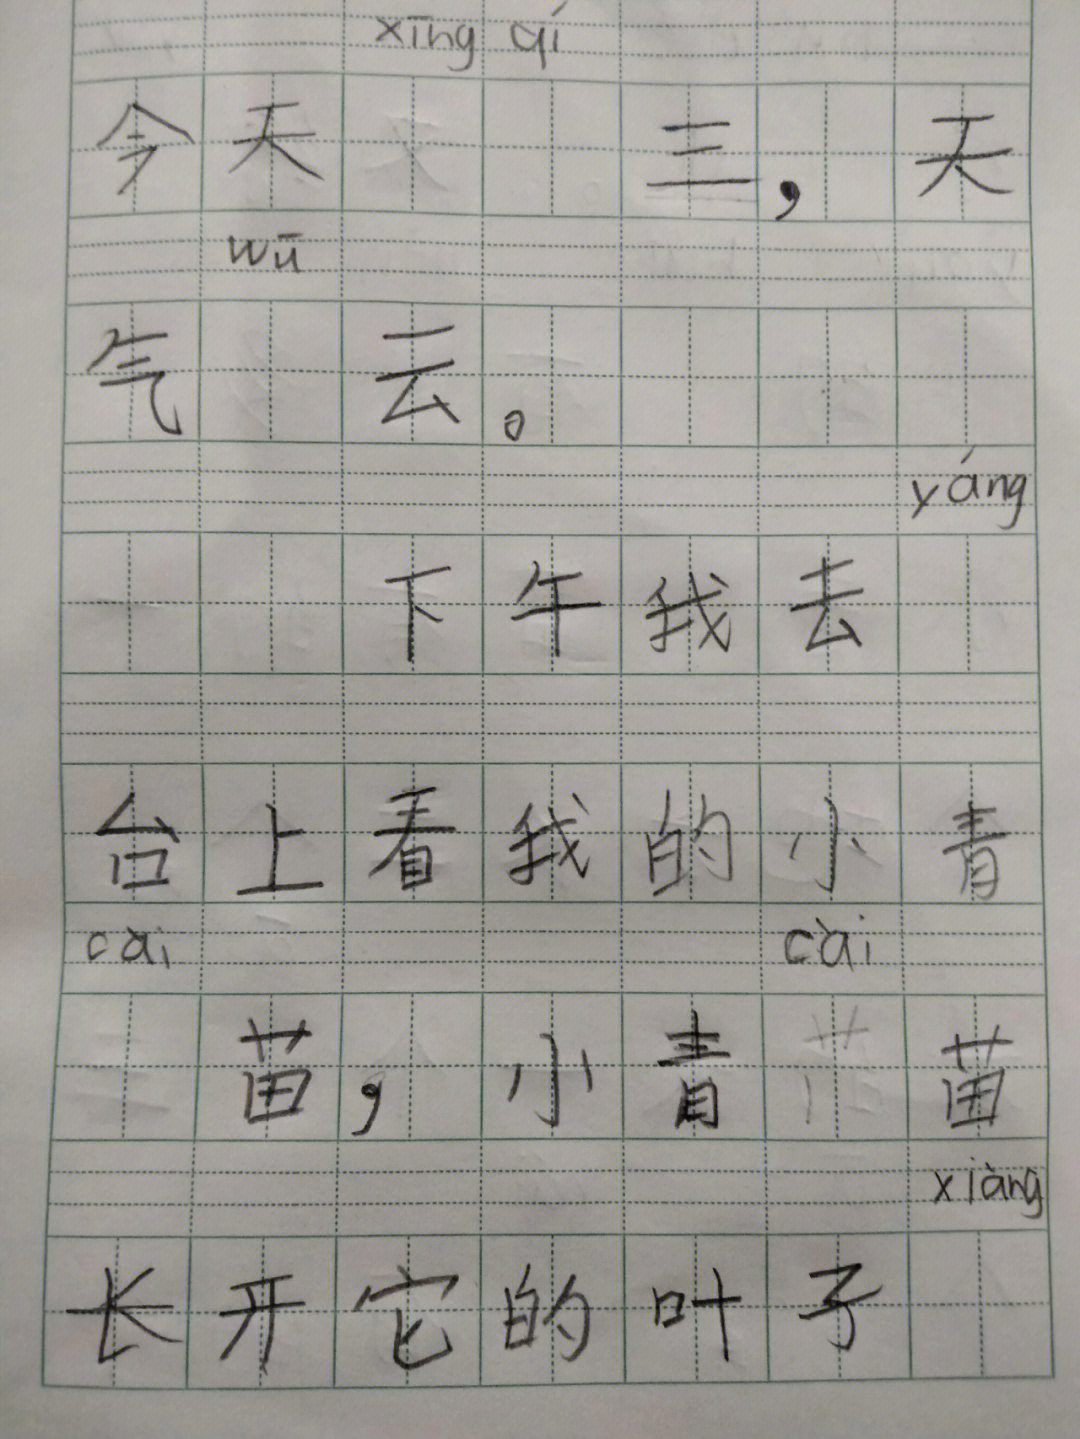 xīng qí
今天三，天
wū
气云。
yáng
下午我去
台上看我的小青
cài cài
苗，小青苗
xiàng
长开它的叶子